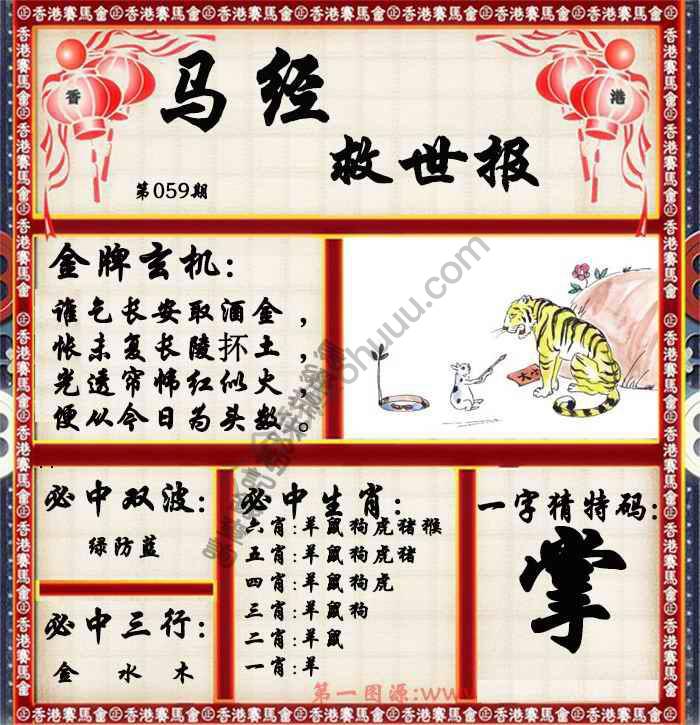 香港賽馬會
香 港
马经
救世报
第059期
金牌玄机：
谁乞长安取酒金，
怅未复长陵抔土，
光透帘帏红似火，
便从今日为头数。
大小
必中双波：
绿防蓝
必中三行：
金 水 木
必中生肖：
六肖:羊鼠狗虎猪猴
五肖:羊鼠狗虎猪
四肖:羊鼠狗虎
三肖:羊鼠狗
二肖:羊鼠
一肖:羊
一字猜特码：
掌
第一图源:www